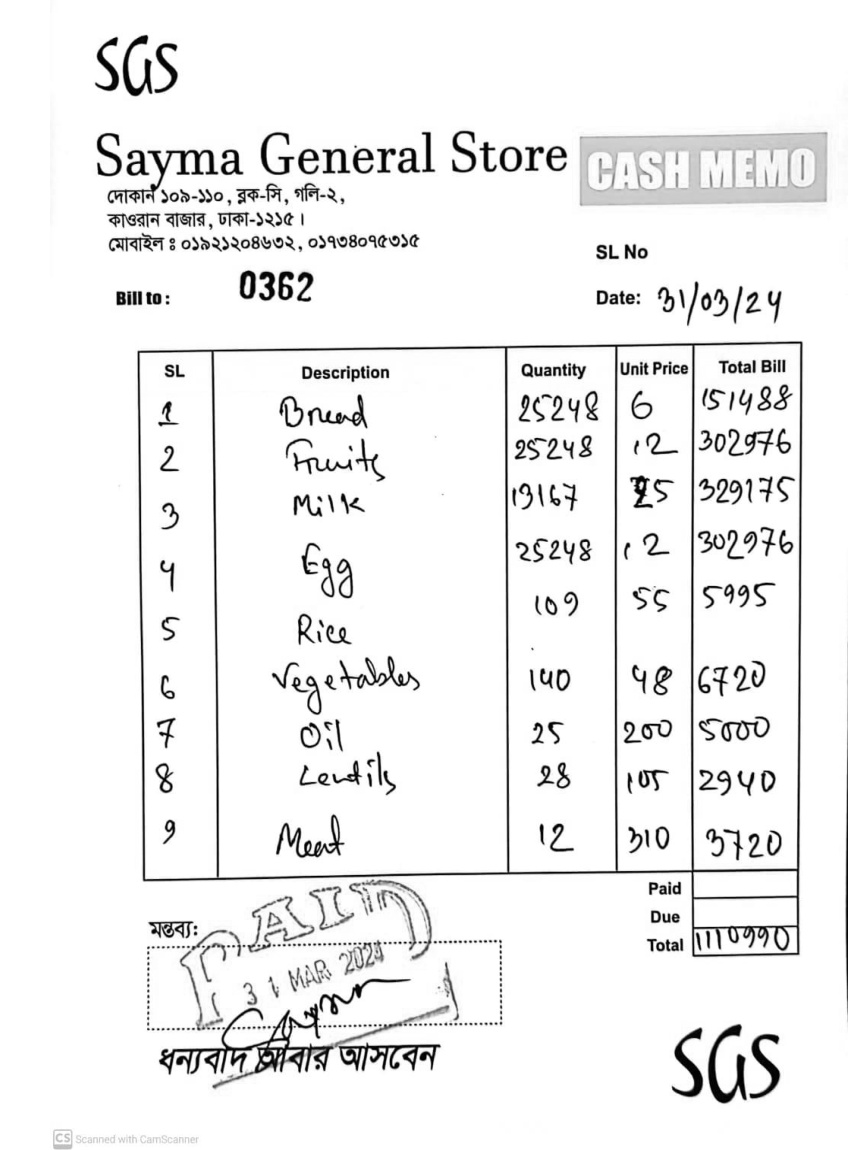 SGS
Sayma General Store CASH MEMO
দোকান ১০৯-১১০, ব্লক-সি, গলি-২,
কাওরান বাজার, ঢাকা-১২১৫।
মোবাইল ঃ ০১৯২১২০৪৬৩২, ০১৭৩৪০৭৫৩১৫
SL No
Bill to : 0362 Date: 31/03/24
SL Description Quantity Unit Price Total Bill
1 Bread 25248 6 151488
2 Fruits 25248 12 302976
3 Milk 13167 25 329175
4 Egg 25248 12 302976
5 Rice 109 55 5995
6 Vegetables 140 48 6720
7 Oil 25 200 5000
8 Lentils 28 105 2940
9 Meat 12 310 3720
Paid
Due
Total 1110990
মন্তব্য:
PAID
31 MAR 2024
ধন্যবাদ আবার আসবেন
SGS
CS Scanned with CamScanner